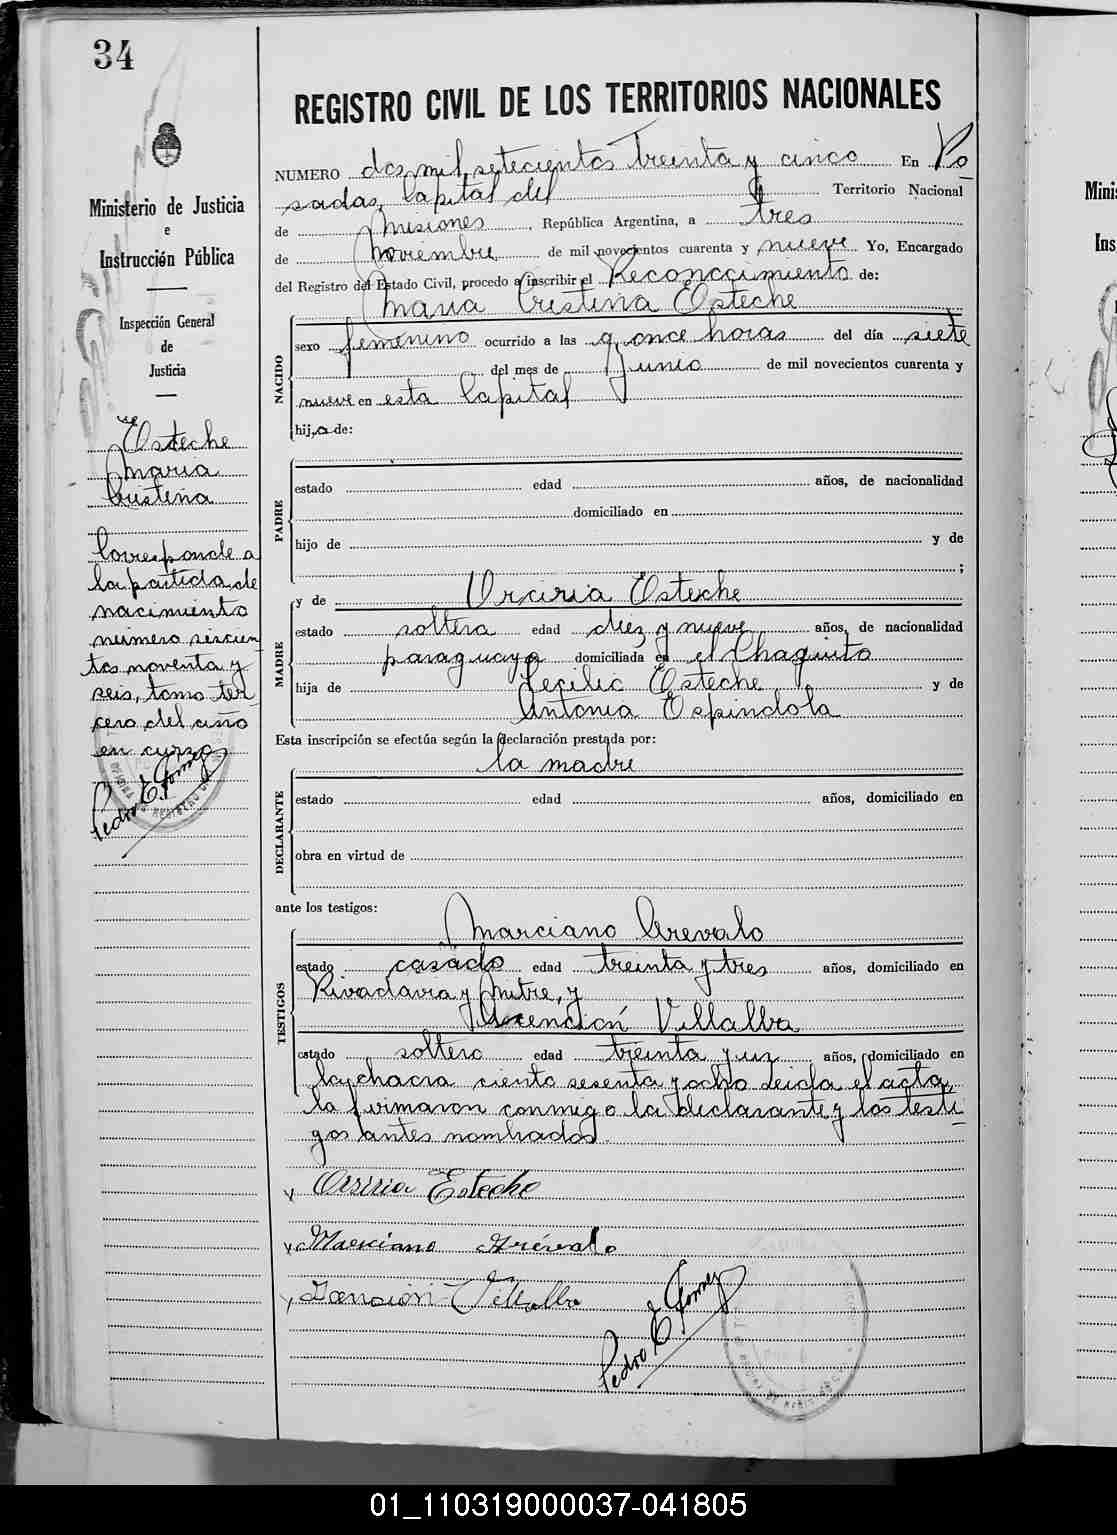 34
REGISTRO CIVIL DE LOS TERRITORIOS NACIONALES
NUMERO dos mil setecientos treinta y cinco En Po
sadas, Capital del Territorio Nacional
de Misiones, República Argentina, a tres
de noviembre de mil novecientos cuarenta y nueve Yo, Encargado
del Registro del Estado Civil, procedo a inscribir el Reconocimiento de:
Maria Cristina Esteche
NACIDO
sexo femenino ocurrido a las once horas del día siete
del mes de junio de mil novecientos cuarenta y
nueve en esta Capital
hija de:
PADRE
estado edad años, de nacionalidad
domiciliado en
hijo de y de
;
y de Orciria Esteche
MADRE
estado soltera edad diez y nueve años, de nacionalidad
paraguaya domiciliada en el Chaquito
hija de Cecilio Esteche y de
Antonia Espindola
Esta inscripción se efectúa según la declaración prestada por:
la madre
DECLARANTE
estado edad años, domiciliado en
obra en virtud de
ante los testigos:
Marciano Arevalo
TESTIGOS
estado casado edad treinta y tres años, domiciliado en
Rivadavia y Mitre, y
Asención Villalba
estado soltero edad treinta y un años, domiciliado en
la chacra ciento sesenta y ocho Leida el acta,
la firmaron conmigo la declarante y los testi
gos antes nombrados.
Orsiria Esteche
Marciano Arévalo
Villalba
Pedro E Gomez
Ministerio de Justicia
e
Instrucción Pública
Inspección General
de
Justicia
Esteche
Maria
Cristina
Corresponde a
la partida de
nacimiento
número
tos noventa y
seis, tomo ter
cero del año
en curso
Pedro E. Gomez
Minis
Ins
01_110319000037-041805